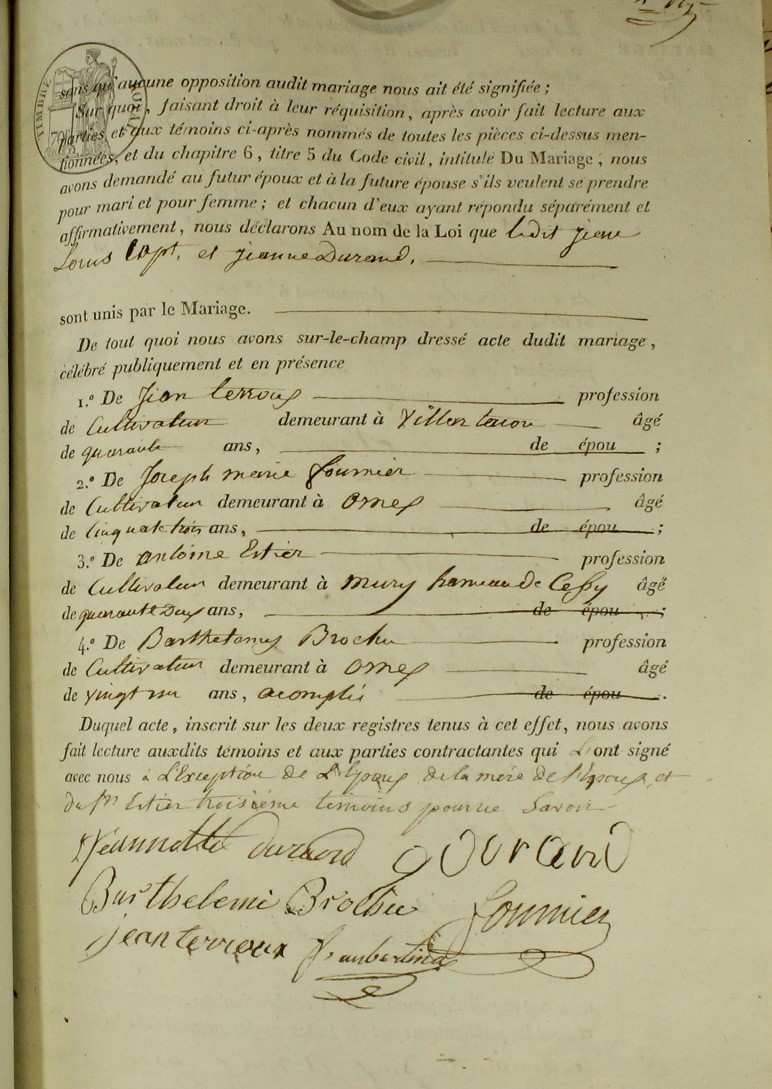 TIMBRE ROYAL
70
sans qu'aucune opposition audit mariage nous ait été signifiée ;
Sur quoi, faisant droit à leur réquisition, après avoir fait lecture aux
parties et aux témoins ci-après nommés de toutes les pièces ci-dessus men-
tionnées, et du chapitre 6, titre 5 du Code civil, intitulé Du Mariage, nous
avons demandé au futur époux et à la future épouse s'ils veulent se prendre
pour mari et pour femme ; et chacun d'eux ayant répondu séparément et
affirmativement, nous déclarons Au nom de la Loi que ledit
Louis Capt, et jeanne Durand,
sont unis par le Mariage.
De tout quoi nous avons sur-le-champ dressé acte dudit mariage,
célébré publiquement et en présence
1.º De Jean terroux profession
de Cultivateur demeurant à âgé
de quarante ans, de épou ;
2.º De Joseph marie fournier profession
de Cultivateur demeurant à ornex âgé
de cinquate trois ans, de épou ;
3.º De antoine Estier profession
de Cultivateur demeurant à mury hameau de Cessy âgé
de quarante Deux ans, de épou ;
4.º De Barthelemy Brochu profession
de Cultivateur demeurant à ornex âgé
de vingt un ans, acomplis de épou .
Duquel acte, inscrit sur les deux registres tenus à cet effet, nous avons
fait lecture auxdits témoins et aux parties contractantes qui l'ont signé
avec nous à L'Exception de L'Epoux de la mère de l'Epoux, et
du Sr Estier troisième temoins pour ne Savoir
Jeannette durand Durand
Barthelemi Brochu fournier
jean terroux